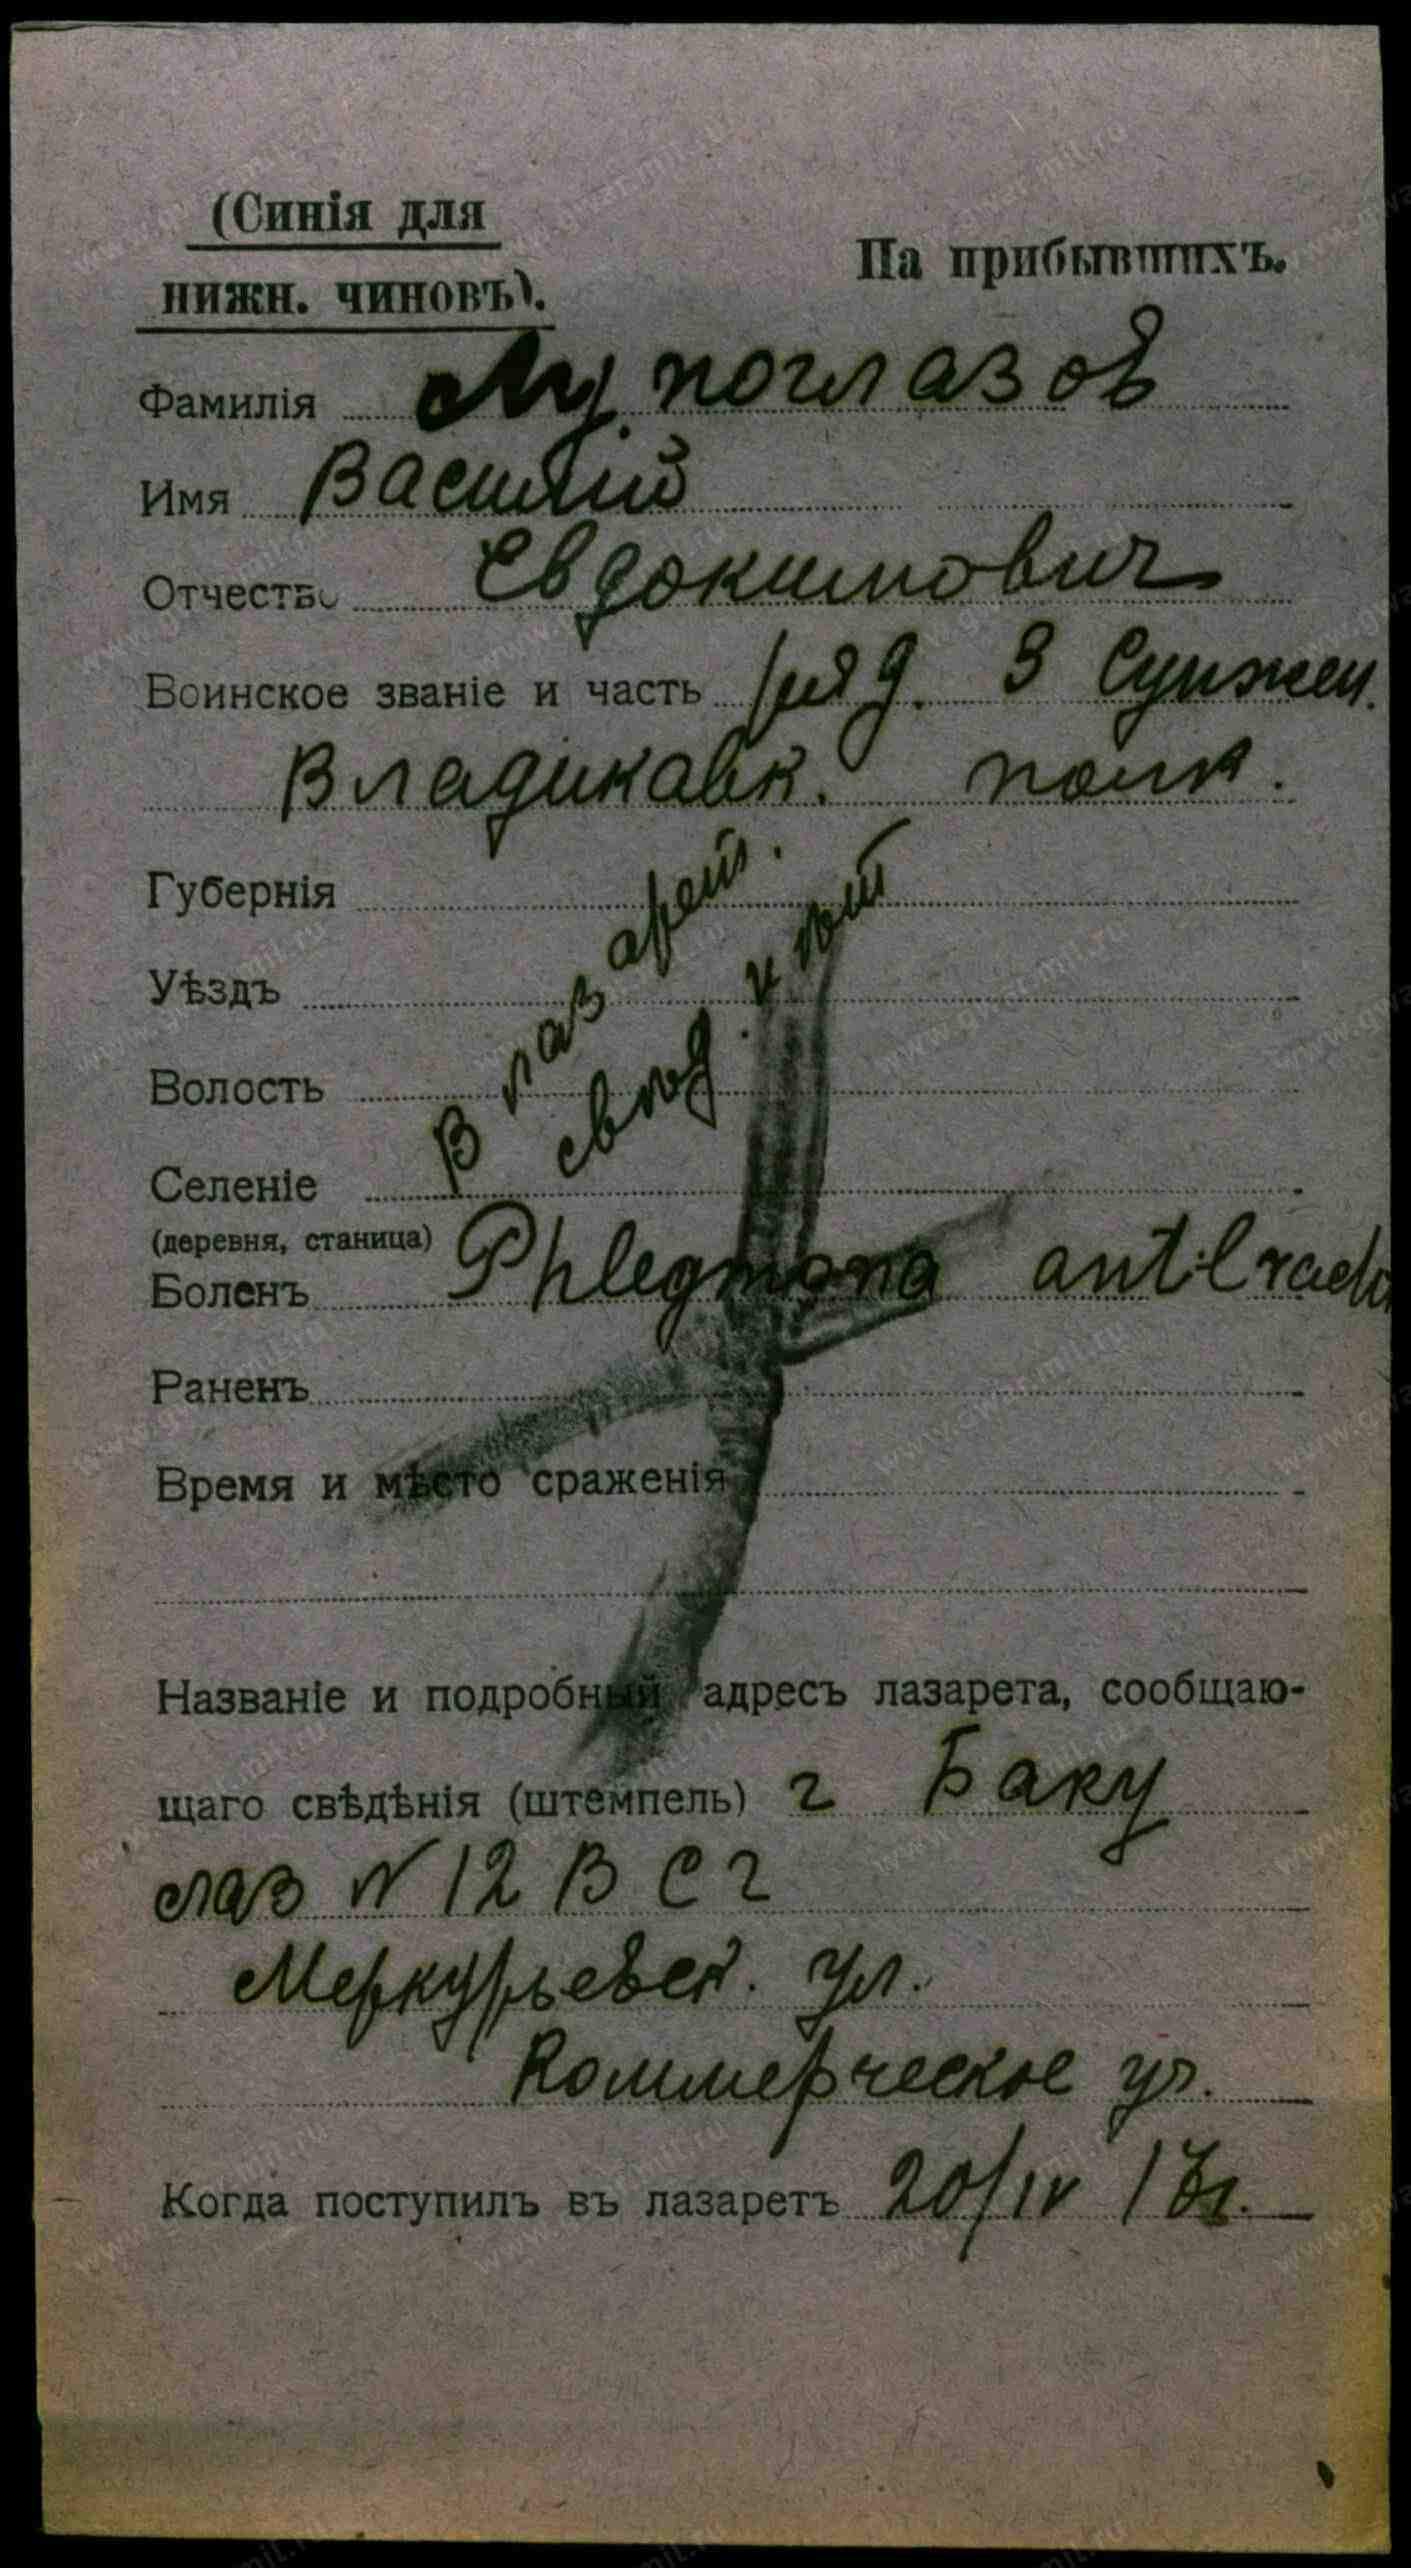 (Синія для
нижн. чиновъ).
На прибывшихъ.
Фамилія Лупоглазов
Имя Василий
Отчество Евдокимович
Воинское званіе и часть ряд. 3 Сунжен.
Владикавк. полк.
Губернія
Уѣздъ
Волость
В лазарет.
свѣд. нѣт
Селеніе
(деревня, станица)
Боленъ Phlegmona
Раненъ
Время и мѣсто сраженія
Названіе и подробный адресъ лазарета, сообщаю-
щаго свѣдѣнія (штемпель) г Баку
лаз N 12 В С г
Меркурьевск. ул.
Коммерческое уч.
Когда поступилъ въ лазаретъ 20/IV
www.gwar.mil.ru